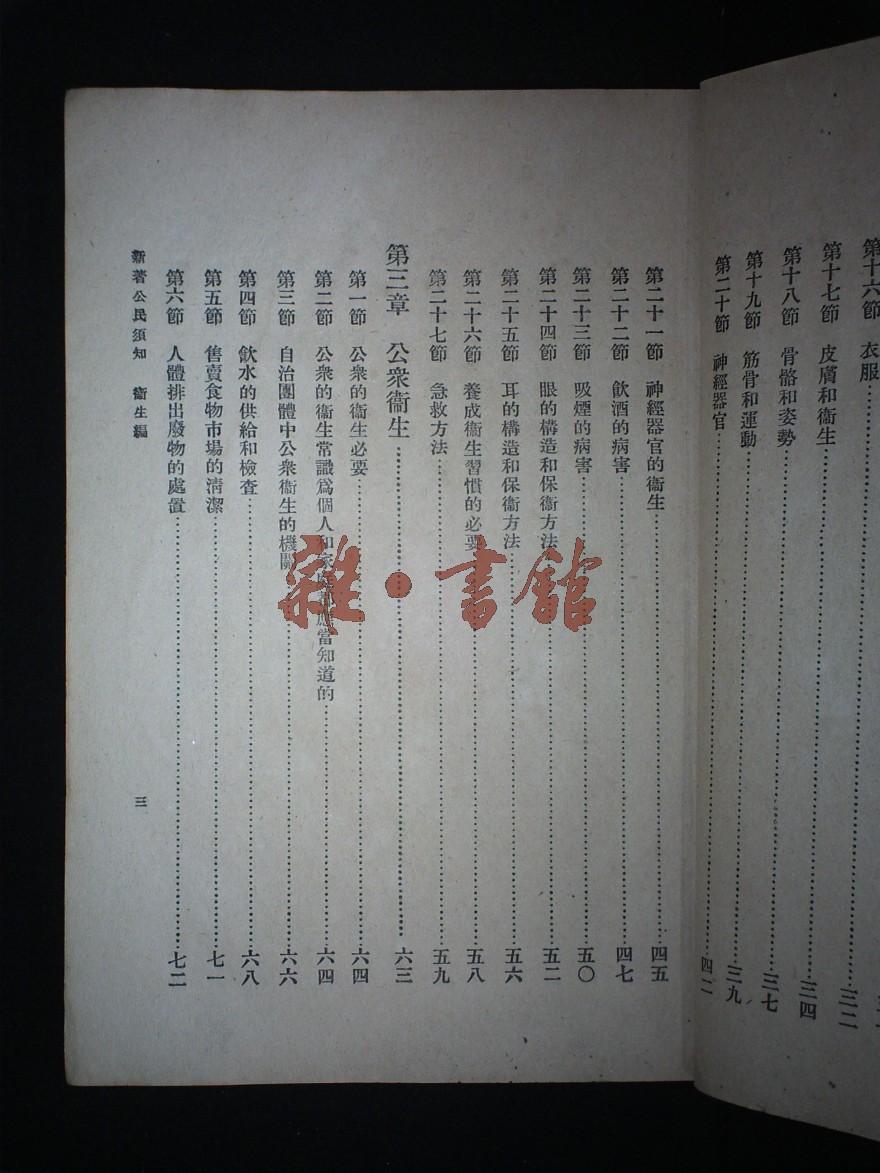 第十六節 衣服……三二
第十七節 皮膚和衞生……三四
第十八節 骨骼和姿勢……三七
第十九節 筋骨和運動……三九
第二十節 神經器官……四二
第二十一節 神經器官的衞生……四五
第二十二節 飮酒的病害……四七
第二十三節 吸煙的病害……五〇
第二十四節 眼的構造和保衞方法……五二
第二十五節 耳的構造和保衞方法……五六
第二十六節 養成衞生習慣的必要……五八
第二十七節 急救方法……五九
第三章 公衆衞生……六三
第一節 公衆的衞生必要……六四
第二節 公衆的衞生常識爲個人和家庭都應當知道的……六四
第三節 自治團體中公衆衞生的機關……六六
第四節 飮水的供給和檢查……六八
第五節 售賣食物市場的淸潔……七一
第六節 人體排出廢物的處置……七二
新著公民須知 衞生編
三
雜·書館